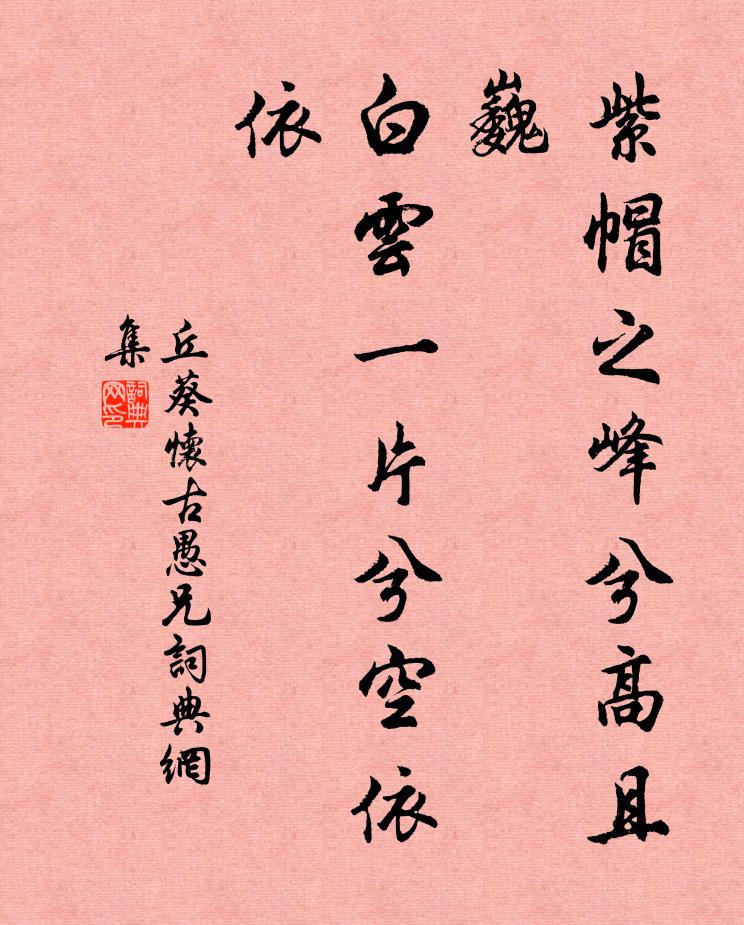 紫帽之峰兮高且
巍
白雲一片兮空依
依
丘葵懷古愚兄詞典網
集
詞典
网印